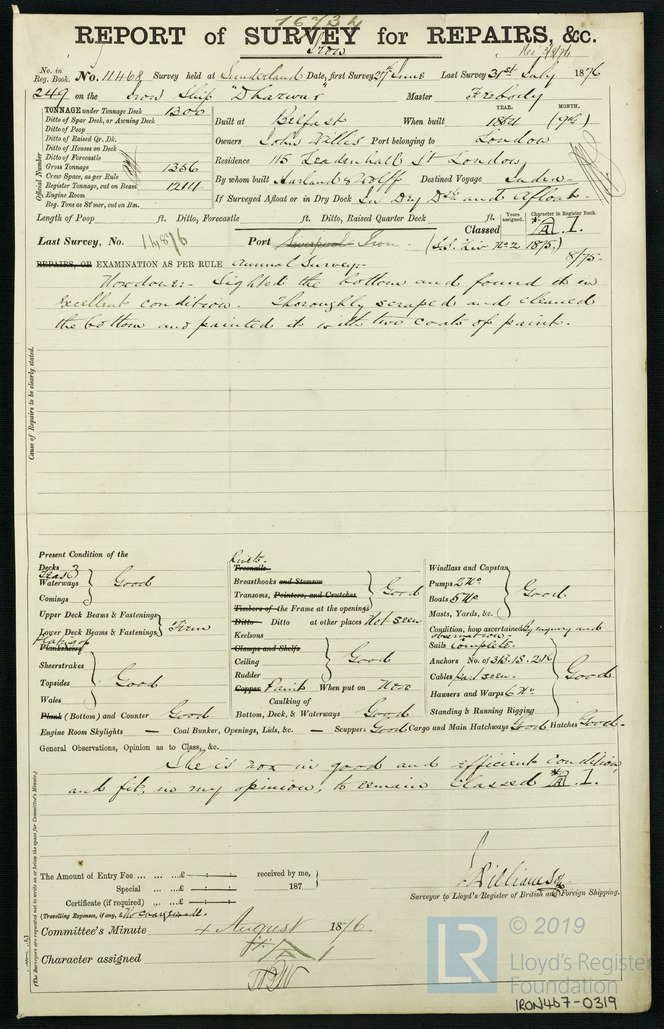 16734
REPORT of SURVEY for REPAIRS, &c.
Iron
Rec 3/8/76
No. in Reg. Book. No. 11468 Survey held at Sunderland Date, first Survey 27th June Last Survey 31st July 1876
249 on the Iron Ship "Dharwar" Master Freebody
TONNAGE under Tonnage Deck 1300
Ditto of Spar Deck, or Awning Deck
Ditto of Poop
Ditto of Raised Qr. Dk.
Ditto of Houses on Deck
Ditto of Forecastle
Gross Tonnage 1356
Crew Space, as per Rule
Register Tonnage, cut on Beam 1214
Engine Room
Reg. Tons as St'mer, cut on Bm.
Official Number
Built at Belfast When built YEAR. 1864 MONTH. (9mo)
Owners John Willis Port belonging to London
Residence 115 Leadenhall St London
By whom built Harland & Wolff Destined Voyage India
If Surveyed Afloat or in Dry Dock In Dry Dk and Afloat
Length of Poop ft. Ditto, Forecastle ft. Ditto, Raised Quarter Deck ft.
Years assigned. Character in Register Book.
Classed A 1.
Last Survey, No. 14876 Port Liverpool Iron. (S.S. Liv No 2 1875.)
8/75
REPAIRS, OR EXAMINATION AS PER RULE, Annual Survey:-
Now done:- Sighted the bottom and found it in
excellent condition. Thoroughly scraped and cleaned
the bottom and painted it with two coats of paint.
Cause of Repairs to be clearly stated.
Present Condition of the
Decks
Teak
Waterways
Comings
Good
Upper Deck Beams & Fastenings
Lower Deck Beams & Fastenings
Firm
Plating of
Plansheirs
Sheerstrakes
Topsides
Wales
Good
Plank (Bottom) and Counter Good
Rivets.
Treenails
Breasthooks and Stemson
Transoms, Pointers, and Crutches
Timbers of the Frame at the openings
Good
Ditto Ditto at other places Not seen
Keelsons
Clamps and Shelfs
Ceiling
Rudder
Good
Copper Paint When put on Now
Caulking of
Bottom, Deck, & Waterways Good
Windlass and Capstan
Pumps 2 No
Boats 5 No
Masts, Yards, &c.
Good
Condition, how ascertained by inquiry and
observation
Sails Complete.
Anchors No. of 3B. 1S. 2K
Cables part seen.
Hawsers and Warps 6 No
Standing & Running Rigging
Good
Engine Room Skylights — Coal Bunker, Openings, Lids, &c. — Scuppers Good Cargo and Main Hatchways Good Hatches Good.
General Observations, Opinion as to Class, &c.
She is now in good and efficient condition,
and fit, in my opinion, to remain Classed A 1.
The Amount of Entry Fee ... ... ...£ : : received by me,
Special ... ...£ : : 187
Certificate (if required) ... ...£ : :
(Travelling Expenses, if any, £ No charge made.
Surveyor to Lloyd's Register of British and Foreign Shipping.
Committee's Minute 4 August 1876
Character assigned
(The Surveyors are requested not to write on or below the space for Committee's Minute.)
© 2019
LR
Lloyd's Register
Foundation
IRON407-0319